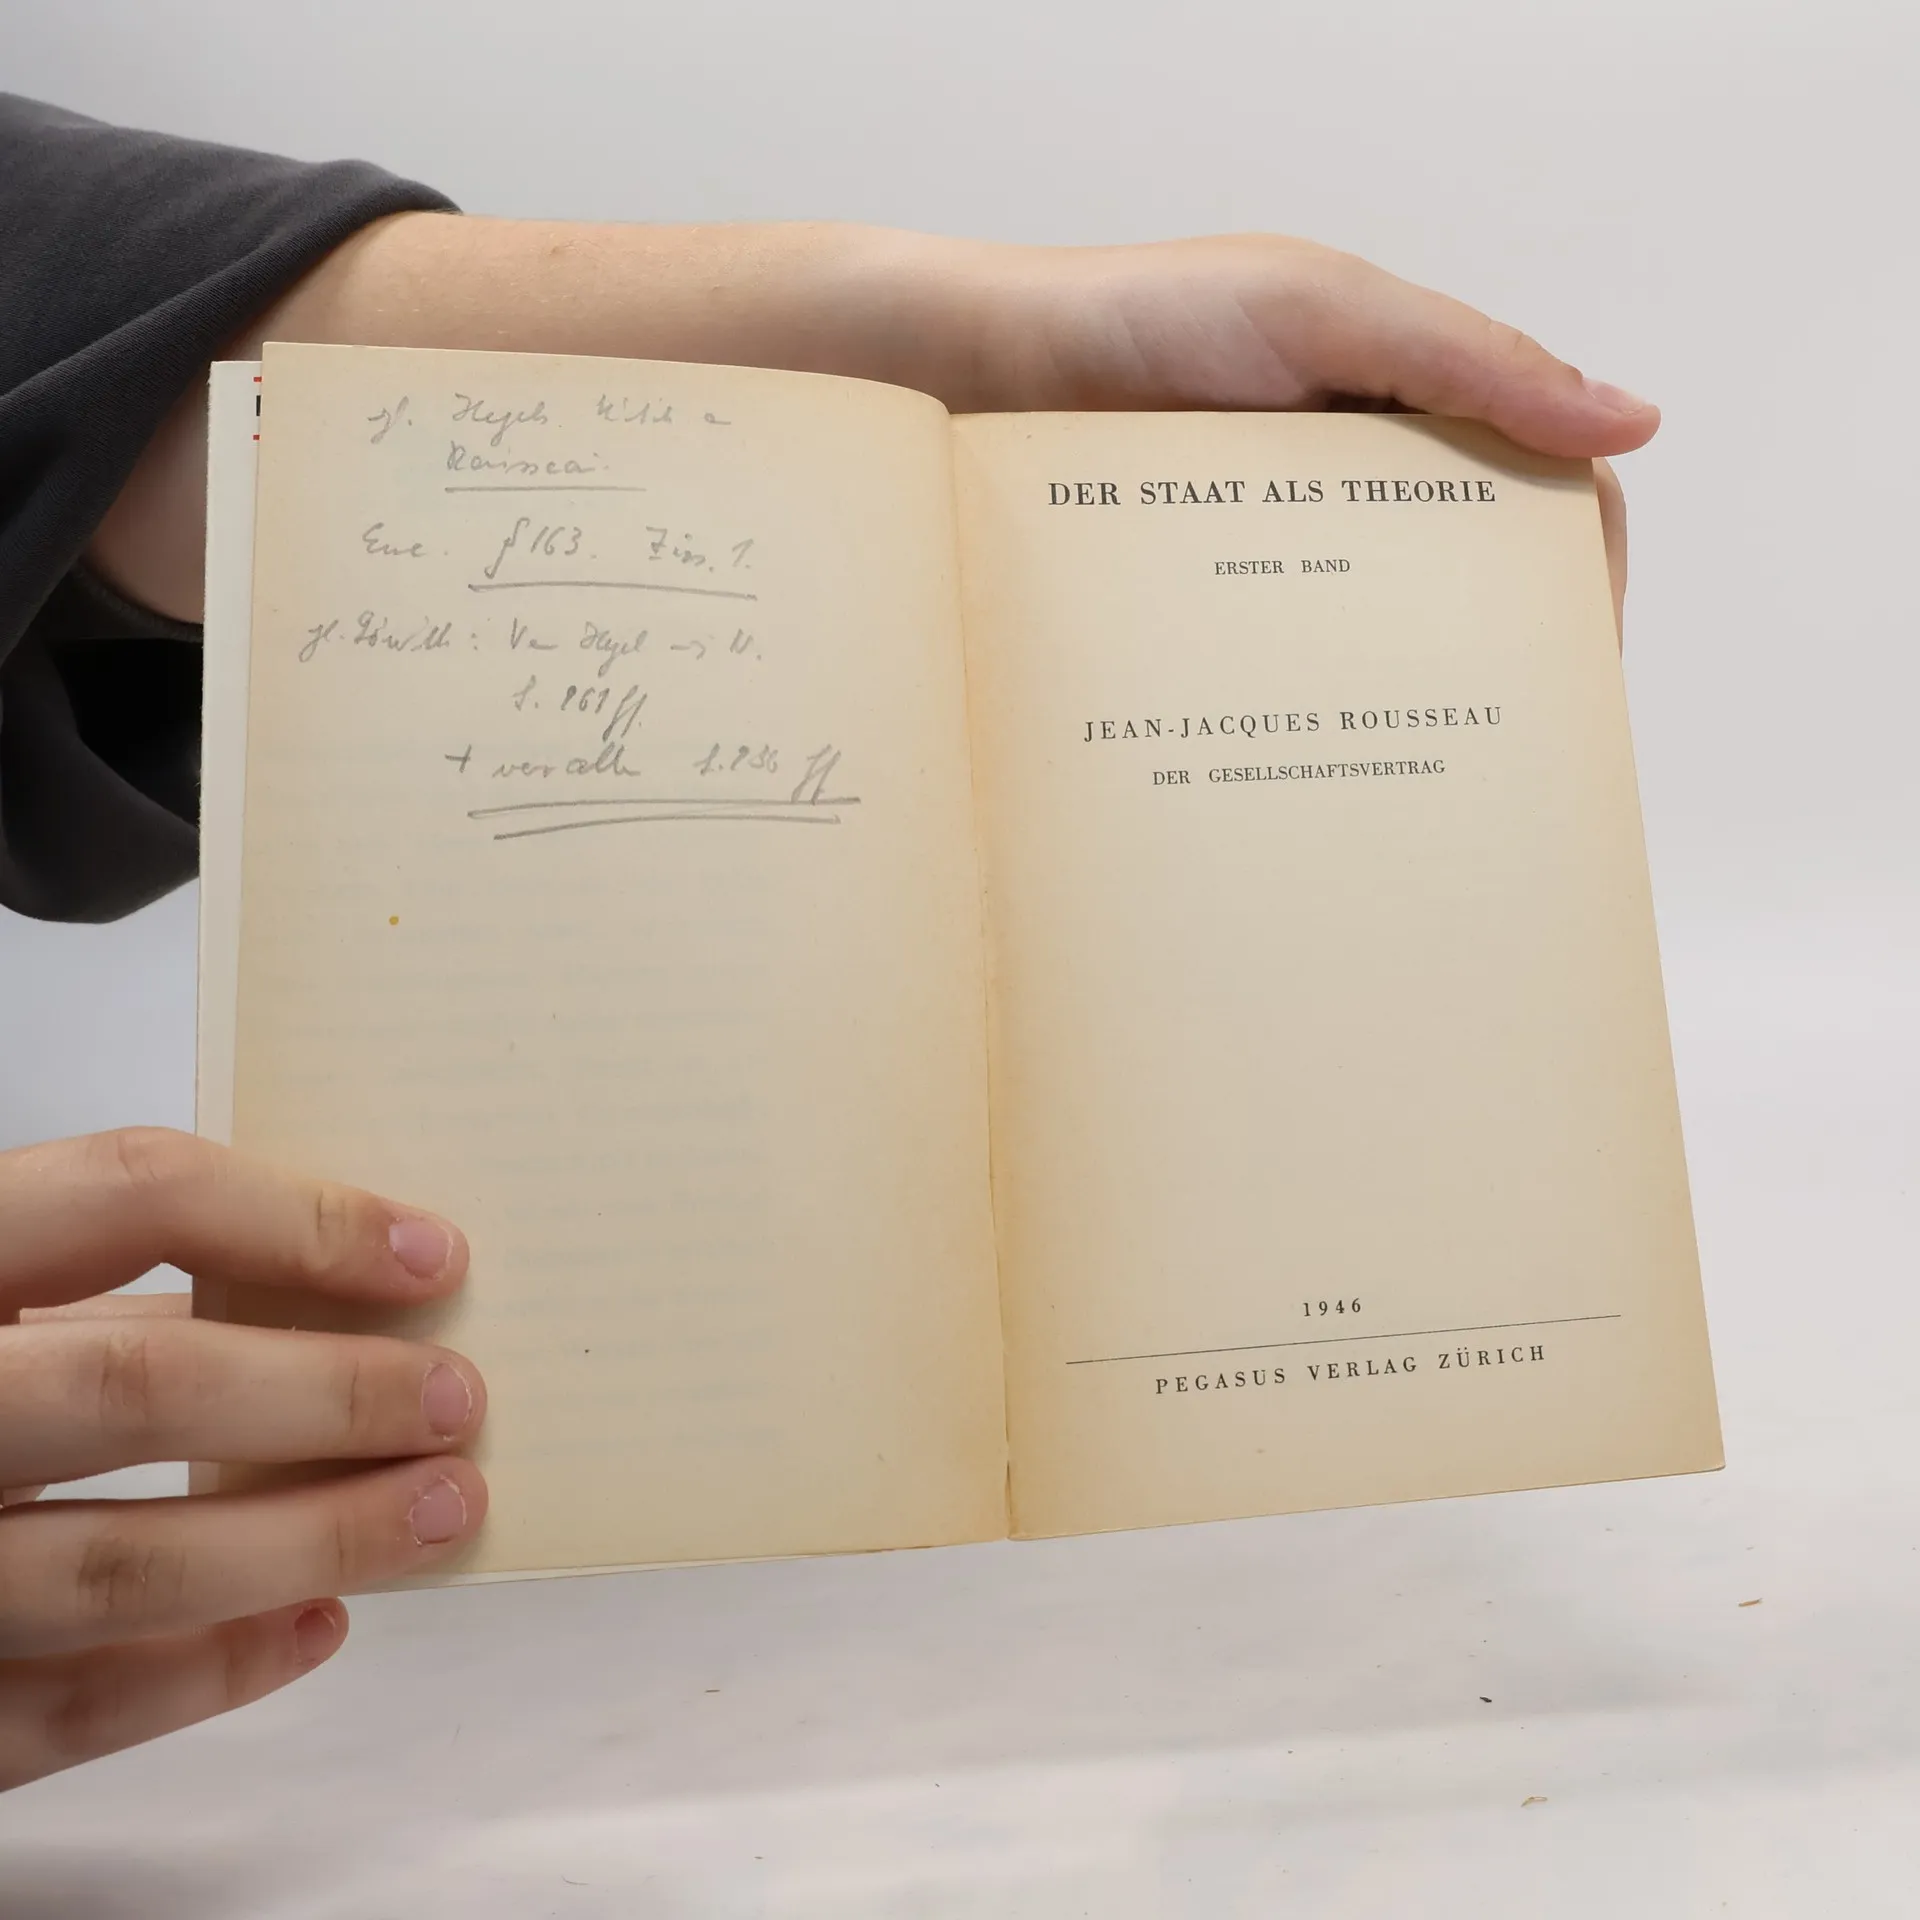 vgl. Hegels Kritik a
Rousseau.
Enc. § 163. Zus. 1.
vgl. Löwith: Von Hegel N.
S. 261 ff.
+ vor allem S. 236 ff
DER STAAT ALS THEORIE
ERSTER BAND
JEAN-JACQUES ROUSSEAU
DER GESELLSCHAFTSVERTRAG
1946
PEGASUS VERLAG ZÜRICH